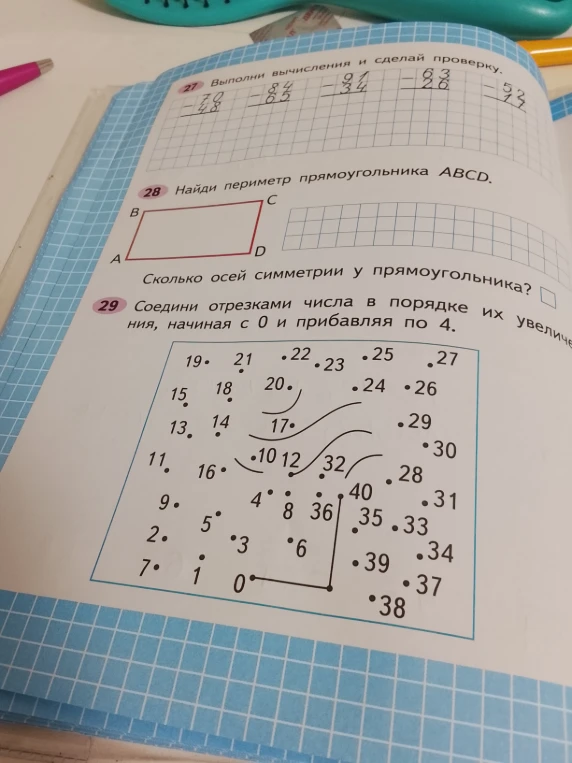 27 Выполни вычисления и сделай проверку.
− 70 − 84 − 91 − 63 − 52
48 65 34 26
28 Найди периметр прямоугольника ABCD.
B C
A D
Сколько осей симметрии у прямоугольника?
29 Соедини отрезками числа в порядке их увеличе
ния, начиная с 0 и прибавляя по 4.
19 21 22 23 25 27
15 18 20 24 26
13 14 17 29 30
11 16 10 12 32 28
9 4 8 36 40 31
2 5 3 6 35 33 34
7 1 0 39 37
38